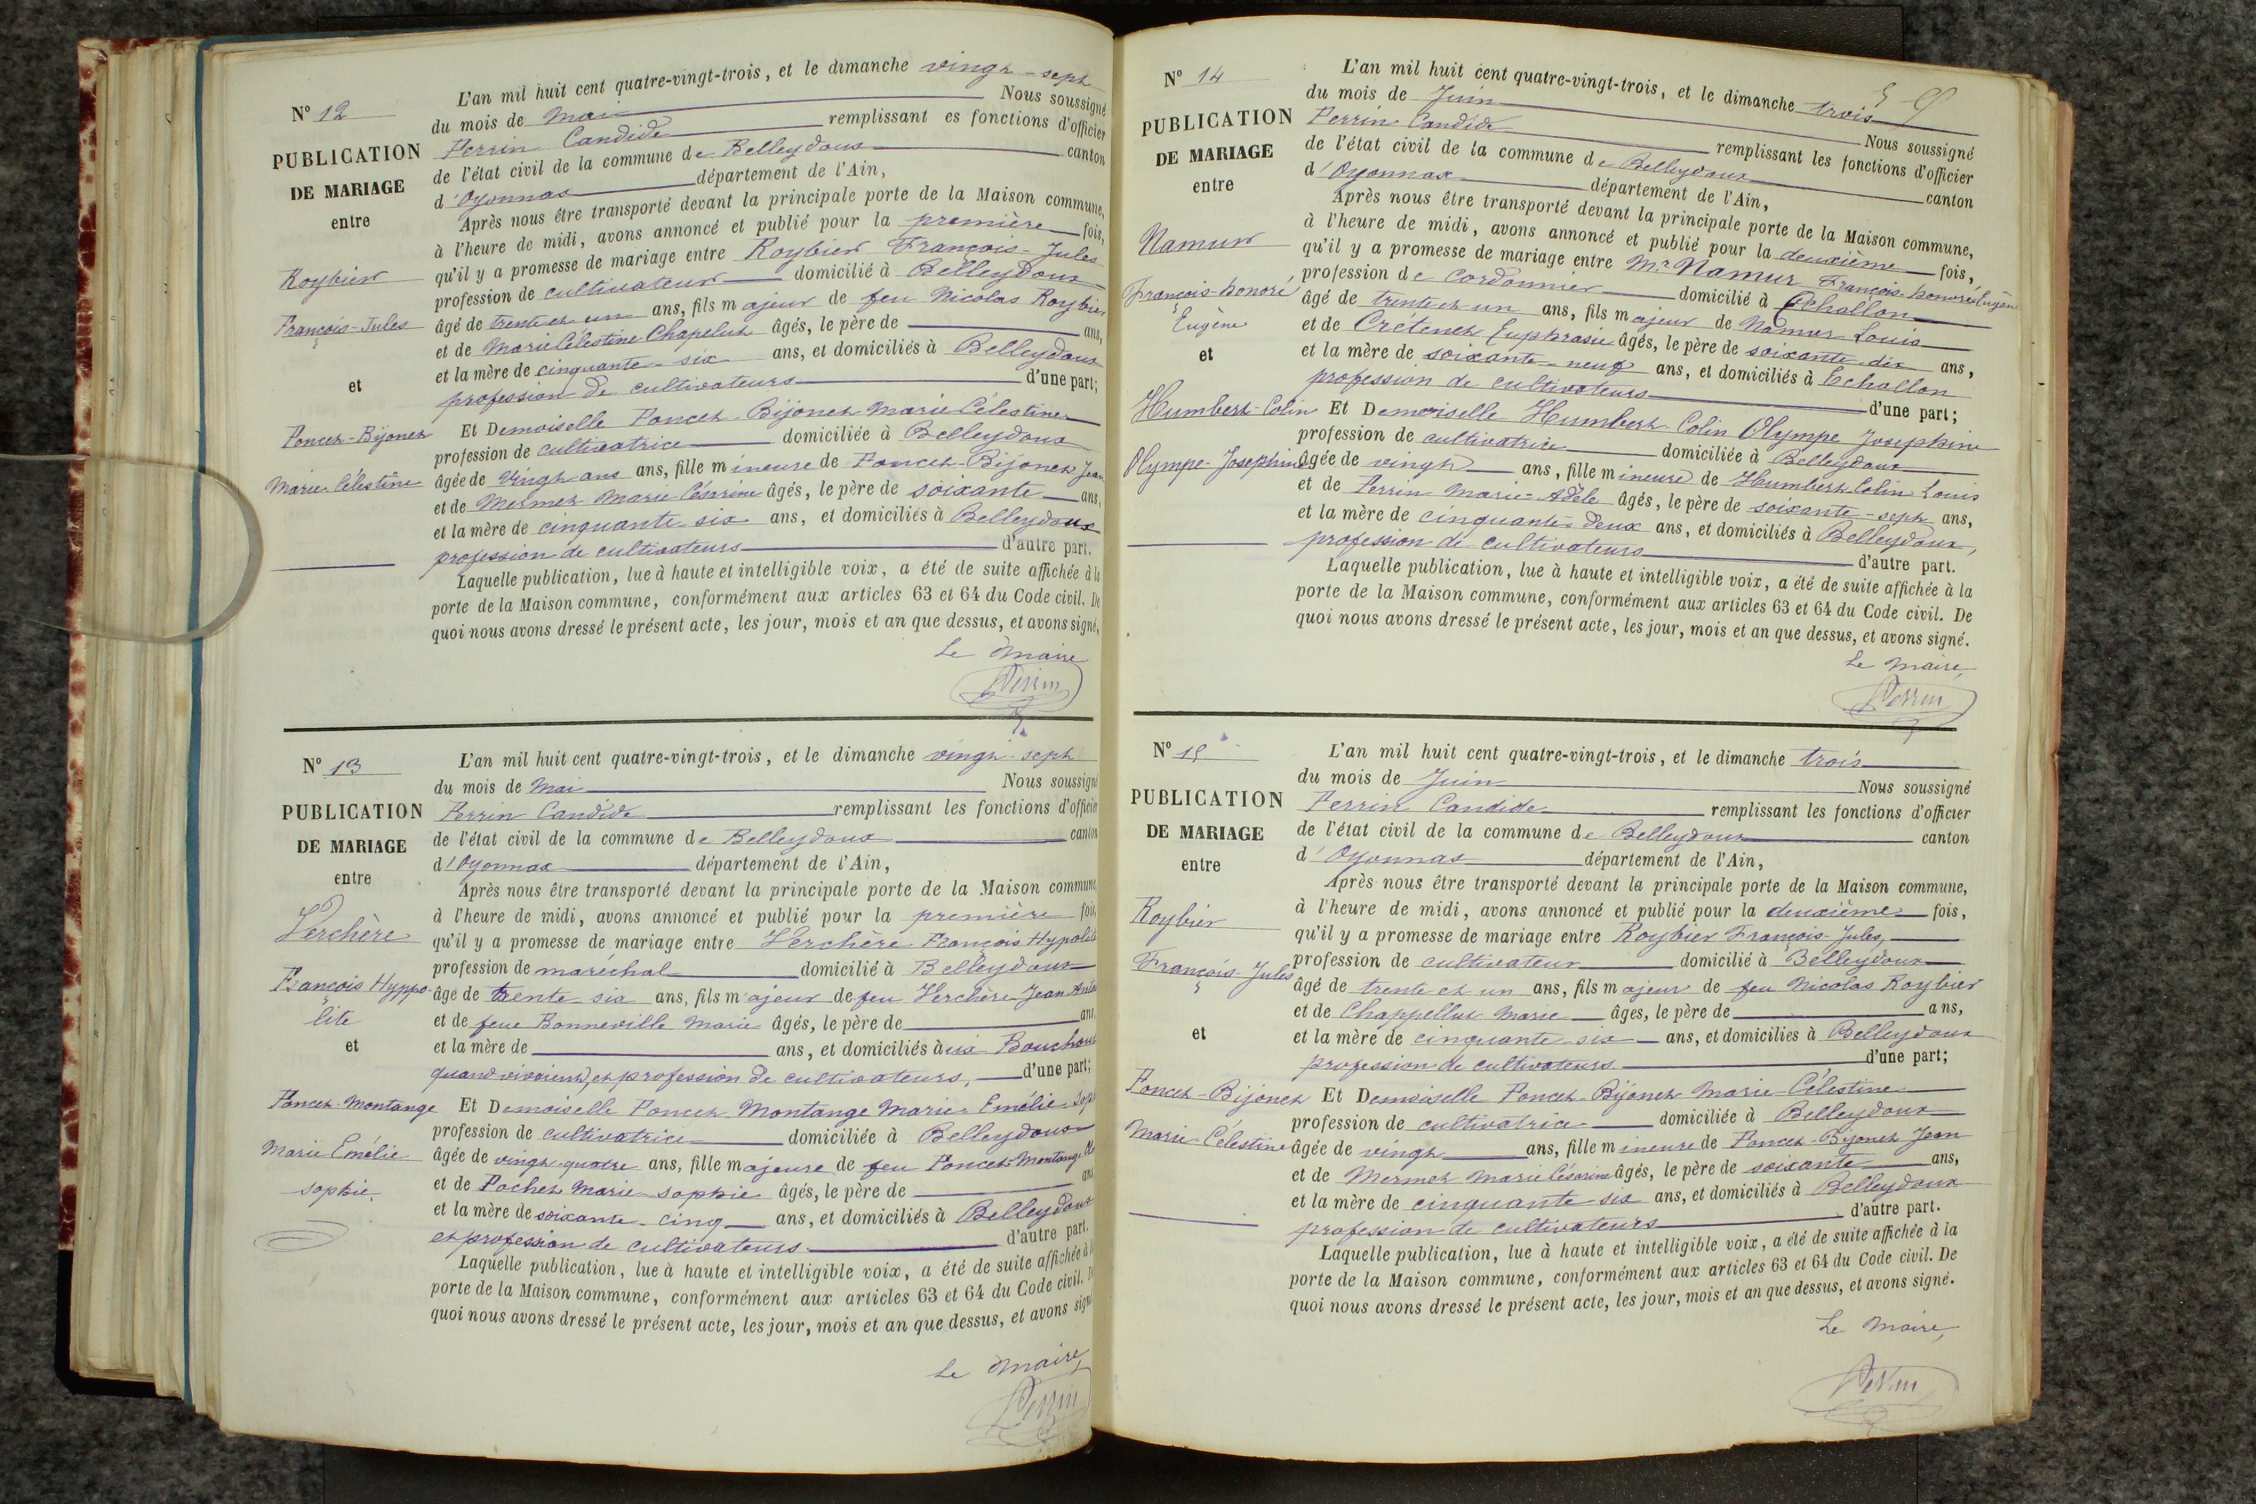 N° 12
PUBLICATION
DE MARIAGE
entre
Roybier
François-Jules
et
Poncet-Bijonet
Marie Célestine
L'an mil huit cent quatre-vingt-trois, et le dimanche vingt-sept
du mois de Mai Nous soussigné
Perrin Candide remplissant es fonctions d'officier
de l'état civil de la commune de Belleydoux canton
d'Oyonnax département de l'Ain,
Après nous être transporté devant la principale porte de la Maison commune,
à l'heure de midi, avons annoncé et publié pour la première fois,
qu'il y a promesse de mariage entre Roybier François-Jules
profession de cultivateur domicilié à Belleydoux
âgé de trente et un ans, fils majeur de feu Nicolas Roybier
et de Marie Célestine Chapelut âgés, le père de ans,
et la mère de cinquante-six ans, et domiciliés à Belleydoux
profession de cultivateurs d'une part;
Et Demoiselle Poncet-Bijonet Marie Célestine
profession de cultivatrice domiciliée à Belleydoux
âgée de vingt ans ans, fille mineure de Poncet-Bijonet Jean
et de Mermet Marie Césarine âgés, le père de soixante ans,
et la mère de cinquante six ans, et domiciliés à Belleydoux
profession de cultivateurs d'autre part.
Laquelle publication, lue à haute et intelligible voix, a été de suite affichée à la
porte de la Maison commune, conformément aux articles 63 et 64 du Code civil. De
quoi nous avons dressé le présent acte, les jour, mois et an que dessus, et avons signé,
Le Maire
Perrin
N° 13
PUBLICATION
DE MARIAGE
entre
Verchère
François Hyppo-
lite
et
Poncet-Montange
Marie Emélie
Sophie.
L'an mil huit cent quatre-vingt-trois, et le dimanche vingt-sept
du mois de Mai Nous soussigné
Perrin Candide remplissant les fonctions d'officier
de l'état civil de la commune de Belleydoux canton
d'Oyonnax département de l'Ain,
Après nous être transporté devant la principale porte de la Maison commune,
à l'heure de midi, avons annoncé et publié pour la première fois,
qu'il y a promesse de mariage entre Verchère François Hypolite
profession de maréchal domicilié à Belleydoux
âgé de trente six ans, fils majeur de feu Verchère Jean
et de feue Bonneville Marie âgés, le père de ans
et la mère de ans, et domiciliés à aux Bouchoux
quand vivaient, et profession de cultivateurs, d'une part;
Et Demoiselle Poncet Montange Marie Emélie Sop
profession de cultivatrice domiciliée à Belleydoux
âgée de vingt-quatre ans, fille majeure de feu Poncet Montange
et de Pochet Marie Sophie âgés, le père de ans
et la mère de soixante-cinq ans, et domiciliés à Belleydoux
et profession de cultivateurs d'autre part.
Laquelle publication, lue à haute et intelligible voix, a été de suite affichée à la
porte de la Maison commune, conformément aux articles 63 et 64 du Code civil. De
quoi nous avons dressé le présent acte, les jour, mois et an que dessus, et avons signé
Le Maire,
Perrin
N° 14
PUBLICATION
DE MARIAGE
entre
Namur
François-honoré
Eugène
et
Humbert-Colin
Olympe-Josephine
L'an mil huit cent quatre-vingt-trois, et le dimanche trois
du mois de Juin Nous soussigné
Perrin Candide remplissant les fonctions d'officier
de l'état civil de la commune de Belleydoux canton
d'Oyonnax département de l'Ain,
Après nous être transporté devant la principale porte de la Maison commune,
à l'heure de midi, avons annoncé et publié pour la deuxième fois,
qu'il y a promesse de mariage entre Mr Namur François-honoré Eugène
profession de cordonnier domicilié à Echallon
âgé de trente et un ans, fils majeur de Namur Louis
et de Crétenet Euphrasie âgés, le père de soixante-dix ans,
et la mère de soixante-neuf ans, et domiciliés à Echallon
profession de cultivateurs d'une part;
Et Demoiselle Humbert-Colin Olympe Josephine
profession de cultivatrice domiciliée à Belleydoux
âgée de vingt ans, fille mineure de Humbert Colin Louis
et de Perrin Marie-Adèle âgés, le père de soixante-sept ans,
et la mère de cinquante-deux ans, et domiciliés à Belleydoux,
profession de cultivateurs d'autre part.
Laquelle publication, lue à haute et intelligible voix, a été de suite affichée à la
porte de la Maison commune, conformément aux articles 63 et 64 du Code civil. De
quoi nous avons dressé le présent acte, les jour, mois et an que dessus, et avons signé.
Le Maire,
Perrin
N° 15
PUBLICATION
DE MARIAGE
entre
Roybier
François-Jules
et
Poncet-Bijonet
Marie-Célestine
L'an mil huit cent quatre-vingt-trois, et le dimanche trois
du mois de Juin Nous soussigné
Perrin Candide remplissant les fonctions d'officier
de l'état civil de la commune de Belleydoux canton
d'Oyonnax département de l'Ain,
Après nous être transporté devant la principale porte de la Maison commune,
à l'heure de midi, avons annoncé et publié pour la deuxième fois,
qu'il y a promesse de mariage entre Roybier François-Jules,
profession de cultivateur domicilié à Belleydoux
âgé de trente et un ans, fils majeur de feu Nicolas Roybier
et de Chappellut Marie âges, le père de ans,
et la mère de cinquante-six ans, et domiciliés à Belleydoux
profession de cultivateurs d'une part;
Et Demoiselle Poncet-Bijonet Marie Célestine
profession de cultivatrice domiciliée à Belleydoux
âgée de vingt ans, fille mineure de Poncet-Bijonet Jean
et de Mermet Marie Césarine âgés, le père de soixante ans,
et la mère de cinquante six ans, et domiciliés à Belleydoux
profession de cultivateurs d'autre part.
Laquelle publication, lue à haute et intelligible voix, a été de suite affichée à la
porte de la Maison commune, conformément aux articles 63 et 64 du Code civil. De
quoi nous avons dressé le présent acte, les jour, mois et an que dessus, et avons signé.
Le Maire,
Perrin